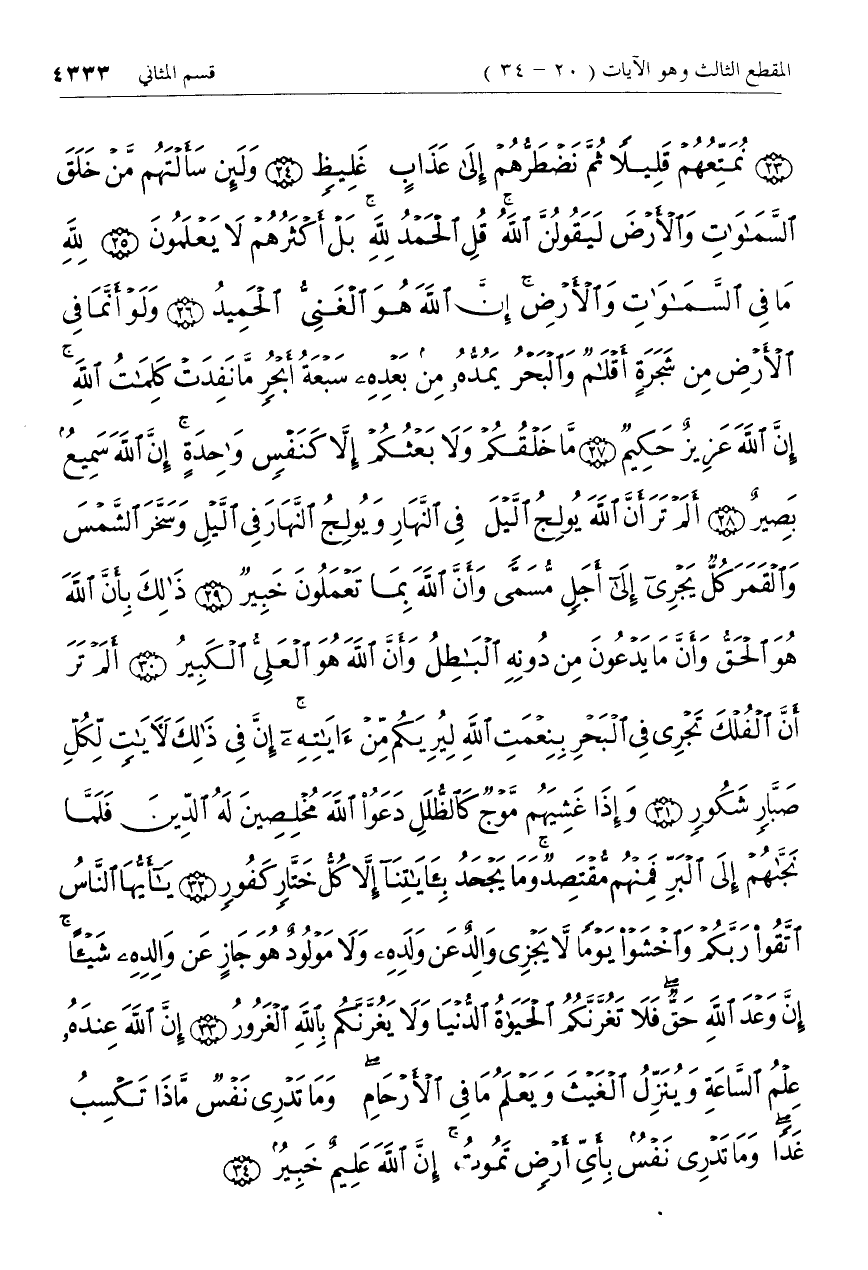 المقطع الثالث وهو الآيات ( ٢٠ - ٣٤ ) قسم المثاني ٤٣٣٣
﴿٢٣﴾ نُمَتِّعُهُمْ قَلِيلًا ثُمَّ نَضْطَرُّهُمْ إِلَىٰ عَذَابٍ غَلِيظٍ ﴿٢٤﴾ وَلَئِن سَأَلْتَهُم مَّنْ خَلَقَ
ٱلسَّمَٰوَٰتِ وَٱلْأَرْضَ لَيَقُولُنَّ ٱللَّهُ ۚ قُلِ ٱلْحَمْدُ لِلَّهِ ۚ بَلْ أَكْثَرُهُمْ لَا يَعْلَمُونَ ﴿٢٥﴾ لِلَّهِ
مَا فِى ٱلسَّمَٰوَٰتِ وَٱلْأَرْضِ ۚ إِنَّ ٱللَّهَ هُوَ ٱلْغَنِىُّ ٱلْحَمِيدُ ﴿٢٦﴾ وَلَوْ أَنَّمَا فِى
ٱلْأَرْضِ مِن شَجَرَةٍ أَقْلَٰمٌ وَٱلْبَحْرُ يَمُدُّهُۥ مِنۢ بَعْدِهِۦ سَبْعَةُ أَبْحُرٍ مَّا نَفِدَتْ كَلِمَٰتُ ٱللَّهِ ۚ
إِنَّ ٱللَّهَ عَزِيزٌ حَكِيمٌ ﴿٢٧﴾ مَّا خَلْقُكُمْ وَلَا بَعْثُكُمْ إِلَّا كَنَفْسٍ وَٰحِدَةٍ ۚ إِنَّ ٱللَّهَ سَمِيعٌۢ
بَصِيرٌ ﴿٢٨﴾ أَلَمْ تَرَ أَنَّ ٱللَّهَ يُولِجُ ٱلَّيْلَ فِى ٱلنَّهَارِ وَيُولِجُ ٱلنَّهَارَ فِى ٱلَّيْلِ وَسَخَّرَ ٱلشَّمْسَ
وَٱلْقَمَرَ كُلٌّ يَجْرِىٓ إِلَىٰٓ أَجَلٍ مُّسَمًّى وَأَنَّ ٱللَّهَ بِمَا تَعْمَلُونَ خَبِيرٌ ﴿٢٩﴾ ذَٰلِكَ بِأَنَّ ٱللَّهَ
هُوَ ٱلْحَقُّ وَأَنَّ مَا يَدْعُونَ مِن دُونِهِ ٱلْبَٰطِلُ وَأَنَّ ٱللَّهَ هُوَ ٱلْعَلِىُّ ٱلْكَبِيرُ ﴿٣٠﴾ أَلَمْ تَرَ
أَنَّ ٱلْفُلْكَ تَجْرِى فِى ٱلْبَحْرِ بِنِعْمَتِ ٱللَّهِ لِيُرِيَكُم مِّنْ ءَايَٰتِهِۦٓ ۚ إِنَّ فِى ذَٰلِكَ لَءَايَٰتٍ لِّكُلِّ
صَبَّارٍ شَكُورٍ ﴿٣١﴾ وَإِذَا غَشِيَهُم مَّوْجٌ كَٱلظُّلَلِ دَعَوُا۟ ٱللَّهَ مُخْلِصِينَ لَهُ ٱلدِّينَ فَلَمَّا
نَجَّىٰهُمْ إِلَى ٱلْبَرِّ فَمِنْهُم مُّقْتَصِدٌ ۚ وَمَا يَجْحَدُ بِـَٔايَٰتِنَآ إِلَّا كُلُّ خَتَّارٍ كَفُورٍ ﴿٣٢﴾ يَٰٓأَيُّهَا ٱلنَّاسُ
ٱتَّقُوا۟ رَبَّكُمْ وَٱخْشَوْا۟ يَوْمًا لَّا يَجْزِى وَالِدٌ عَن وَلَدِهِۦ وَلَا مَوْلُودٌ هُوَ جَازٍ عَن وَالِدِهِۦ شَيْـًٔا ۚ
إِنَّ وَعْدَ ٱللَّهِ حَقٌّ ۖ فَلَا تَغُرَّنَّكُمُ ٱلْحَيَوٰةُ ٱلدُّنْيَا وَلَا يَغُرَّنَّكُم بِٱللَّهِ ٱلْغَرُورُ ﴿٣٣﴾ إِنَّ ٱللَّهَ عِندَهُۥ
عِلْمُ ٱلسَّاعَةِ وَيُنَزِّلُ ٱلْغَيْثَ وَيَعْلَمُ مَا فِى ٱلْأَرْحَامِ ۖ وَمَا تَدْرِى نَفْسٌ مَّاذَا تَكْسِبُ
غَدًا ۖ وَمَا تَدْرِى نَفْسٌۢ بِأَىِّ أَرْضٍ تَمُوتُ ۚ إِنَّ ٱللَّهَ عَلِيمٌ خَبِيرٌۢ ﴿٣٤﴾